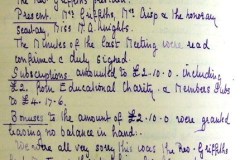 Present. Mrs Griffiths, Mrs Crisp & the honorary
Secretary Miss M. A. Knights.
The Minutes of the Last Meeting were read
confirmed & duly signed.
Subscriptions amounted to £2.10.0. including
£2. from Educational Charity, & Members Subs
to £4.17.6.
Bonuses to the amount of £2.10.0 were granted
leaving no balance in hand.
We were all very sorry this was the Rev. Griffiths